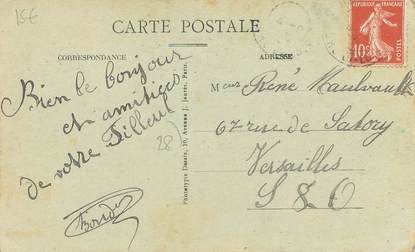 15€
CARTE POSTALE
CORRESPONDANCE
ADRESSE
RÉPUBLIQUE FRANÇAISE
10c
Bien le bonjour
et amitiés
de votre Filleul
28
Phototypie Dassis, 10, Avenue J. Jaurès, Paris.
Meur René
67 rue de Satory
Versailles
S & O